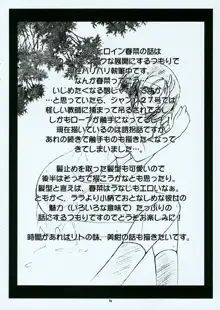 ヒロイン春菜の話は
クな展開にするつもりで
在バリバリ執筆中です。
なんか春菜って
いじめたくなる娘じゃ
…と思っていたら、ジャンプ27号では
怪しい教師に捕まって吊るされてるし
しかもロープが触手に
現在描いているのは誘拐話ですが
あれの続きで触手ものも描きたくなって
きてしまいました…
髪止めを取った髪型も可愛いので
後半はそっちで描こうかなとも思ったり。
髪型と言えば、春菜はうなじもエロいなぁ。
ともかく、ララより小柄でおとなしめな彼女の
魅力（いろいろな意味で）たっぷりの
話にするつもりですのでどうぞお楽しみに！
時間があればリトの妹、美柑の話も描きたいです。